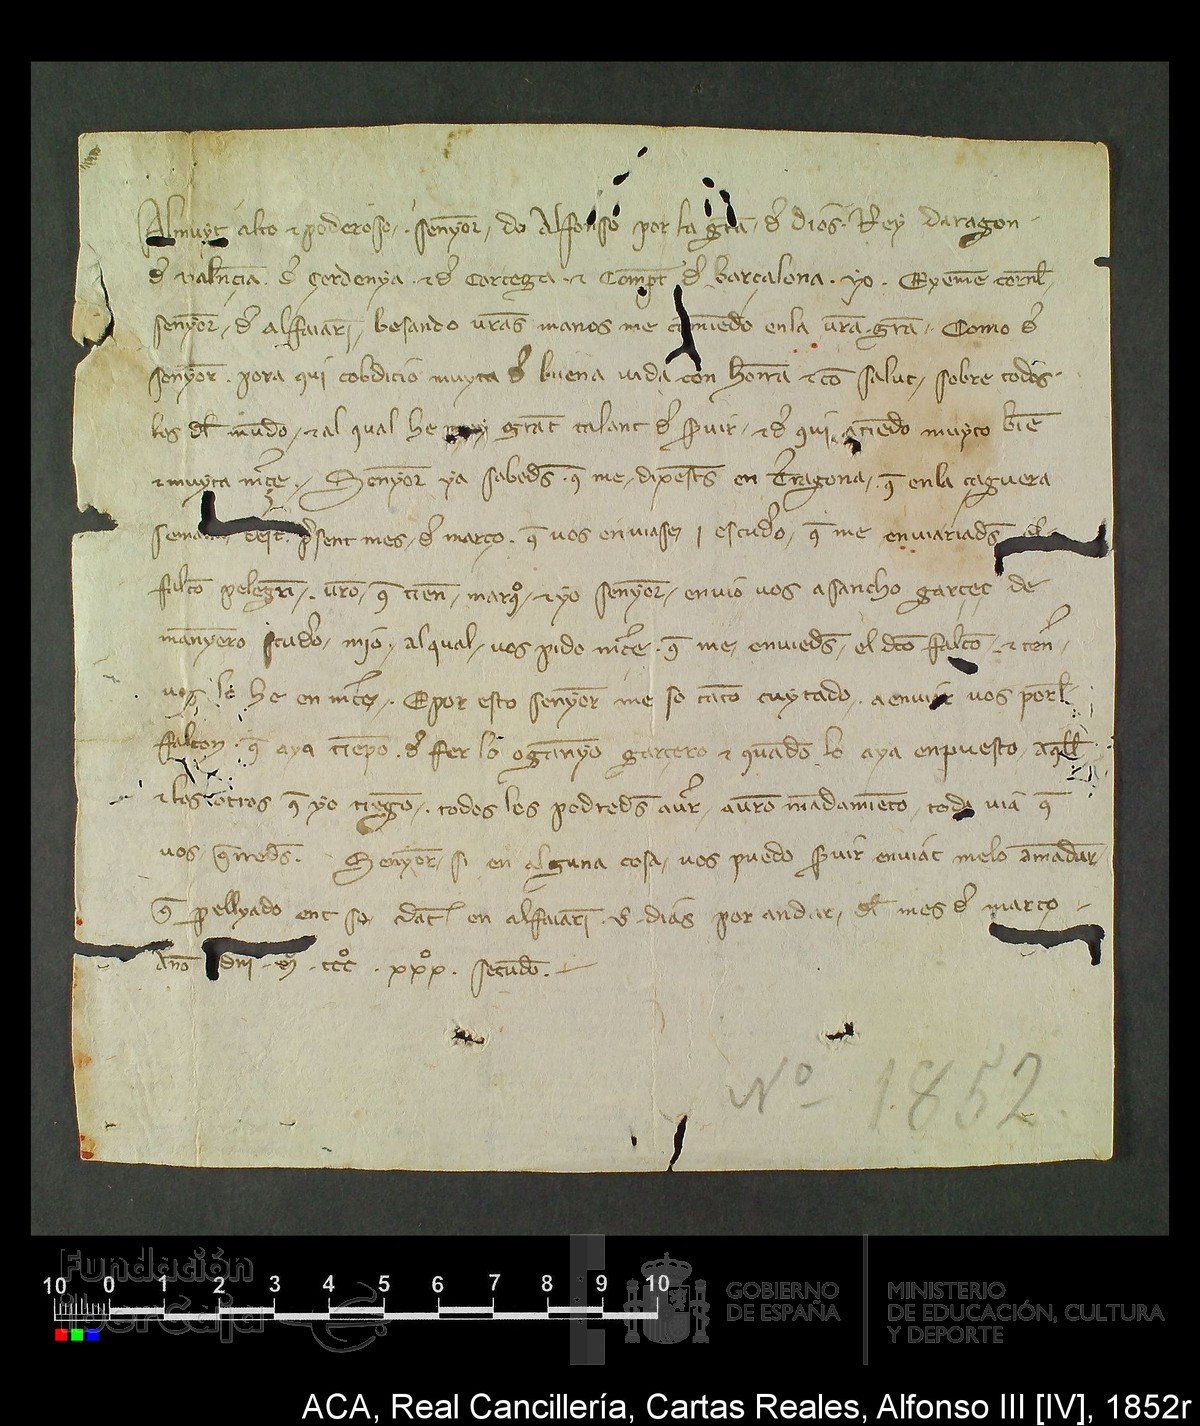 Al muyt alto ⁊ poderoso senyor do Alffonso por la gr̃a de dios Rey Daragon
de ualẽcia de Çerdenya ⁊ de Corcega ⁊ Compt de barçalona yo Exeme cornel
senyor de alfaiarĩ besando ur̃as manos me comiẽdo en la ur̃a gr̃a Como de
senyor pora qui cobdicio muyta de buena uida con honr̃a ⁊ cõ salut sobre todos
los del mũdo ⁊ al qual he grãt talant de seruir ⁊ de qui atiẽdo muyto biẽ
⁊ muyta mr̃ce Senyor ya sabedes q̃ me dixestes en Tr̃agona q̃ en la çaguera
semana dest present mes de março q̃ uos enuiasse j escudero q̃ me enuiariades el
falcõ pelegrĩ ur̃o q̃ tien marquo ⁊ yo senyor enuio uos a sancho garçeç de
mãnyero scudero mjo al qual uos pido mr̃ce q̃ me enuiedes el dc̃o falcõ ⁊ tẽr
uos lo he en mr̃ce E por esto senyor me so tãto cuytado a enuiar uos por el
falcon q̃ aya tiẽpo de ffer lo oganyo garçero ⁊ quãdo lo aya enpuesto aq̃ll
⁊ los otros q̃ yo tiẽgo todos los podredes auer a ur̃o mãdamiẽto toda uia q̃
uos q̃rredes Senyor si en alguna cosa uos puedo seruir enuiat melo a mãdar
q̃ parellyado ent so dat̃ en alfaiarĩ v dias por andar del mes de março
Año dnĩ m ccc xxx secũdo
Nº 1852
10 0 1 2 3 4 5 6 7 8 9 10
Fundación
iberCaja
GOBIERNO
DE ESPAÑA
MINISTERIO
DE EDUCACIÓN, CULTURA
Y DEPORTE
ACA, Real Cancillería, Cartas Reales, Alfonso III [IV], 1852r